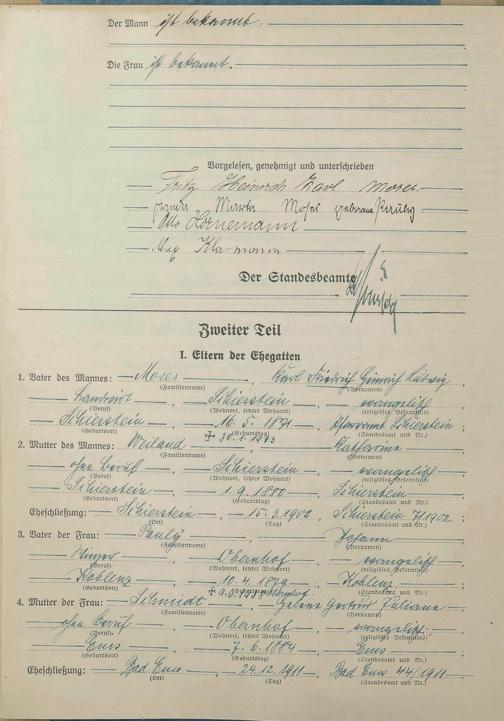 Der Mann ist bekannt.
Die Frau ist bekannt.
Vorgelesen, genehmigt und unterschrieben
Fritz Heinrich Karl Moses
Martha Moses geborene Pauly
Otto Hornemann
Max Klarmann
Der Standesbeamte
Zweiter Teil
I. Eltern der Ehegatten
1. Vater des Mannes: Moses, Karl Friedrich Heinrich Ludwig,
(Familienname) (Vornamen)
Landwirt, Schierstein, evangelisch
(Beruf) (Wohnort, letzter Wohnort) (religiöses Bekenntnis)
Schierstein, 16.5.1871, Pfarramt Schierstein;
(Geburtsort) (Geburtstag) (Standesamt und Nr.)
2. Mutter des Mannes: Weiland, Katharina,
(Familienname) (Vornamen)
ohne Beruf, Schierstein, evangelisch
(Beruf) (Wohnort, letzter Wohnort) (religiöses Bekenntnis)
Schierstein, 1.9.1880, Schierstein;
(Geburtsort) (Geburtstag) (Standesamt und Nr.)
Eheschließung: Schierstein, 15.3.1902, Schierstein 7/1902;
(Ort) (Tag) (Standesamt und Nr.)
3. Vater der Frau: Pauly, Johann
(Familienname) (Vornamen)
Winzer, Obernhof, evangelisch
(Beruf) (Wohnort, letzter Wohnort) (religiöses Bekenntnis)
Koblenz, 10.4.1879, Koblenz;
(Geburtsort) (Geburtstag) (Standesamt und Nr.)
4. Mutter der Frau: Schmidt, Helene Gertrud Juliane,
(Familienname) (Vornamen)
ohne Beruf, Obernhof, evangelisch
(Beruf) (Wohnort, letzter Wohnort) (religiöses Bekenntnis)
Ems, 7.6.1884, Ems;
(Geburtsort) (Geburtstag) (Standesamt und Nr.)
Eheschließung: Bad Ems, 24.12.1911, Bad Ems 44/1911.
(Ort) (Tag) (Standesamt und Nr.)